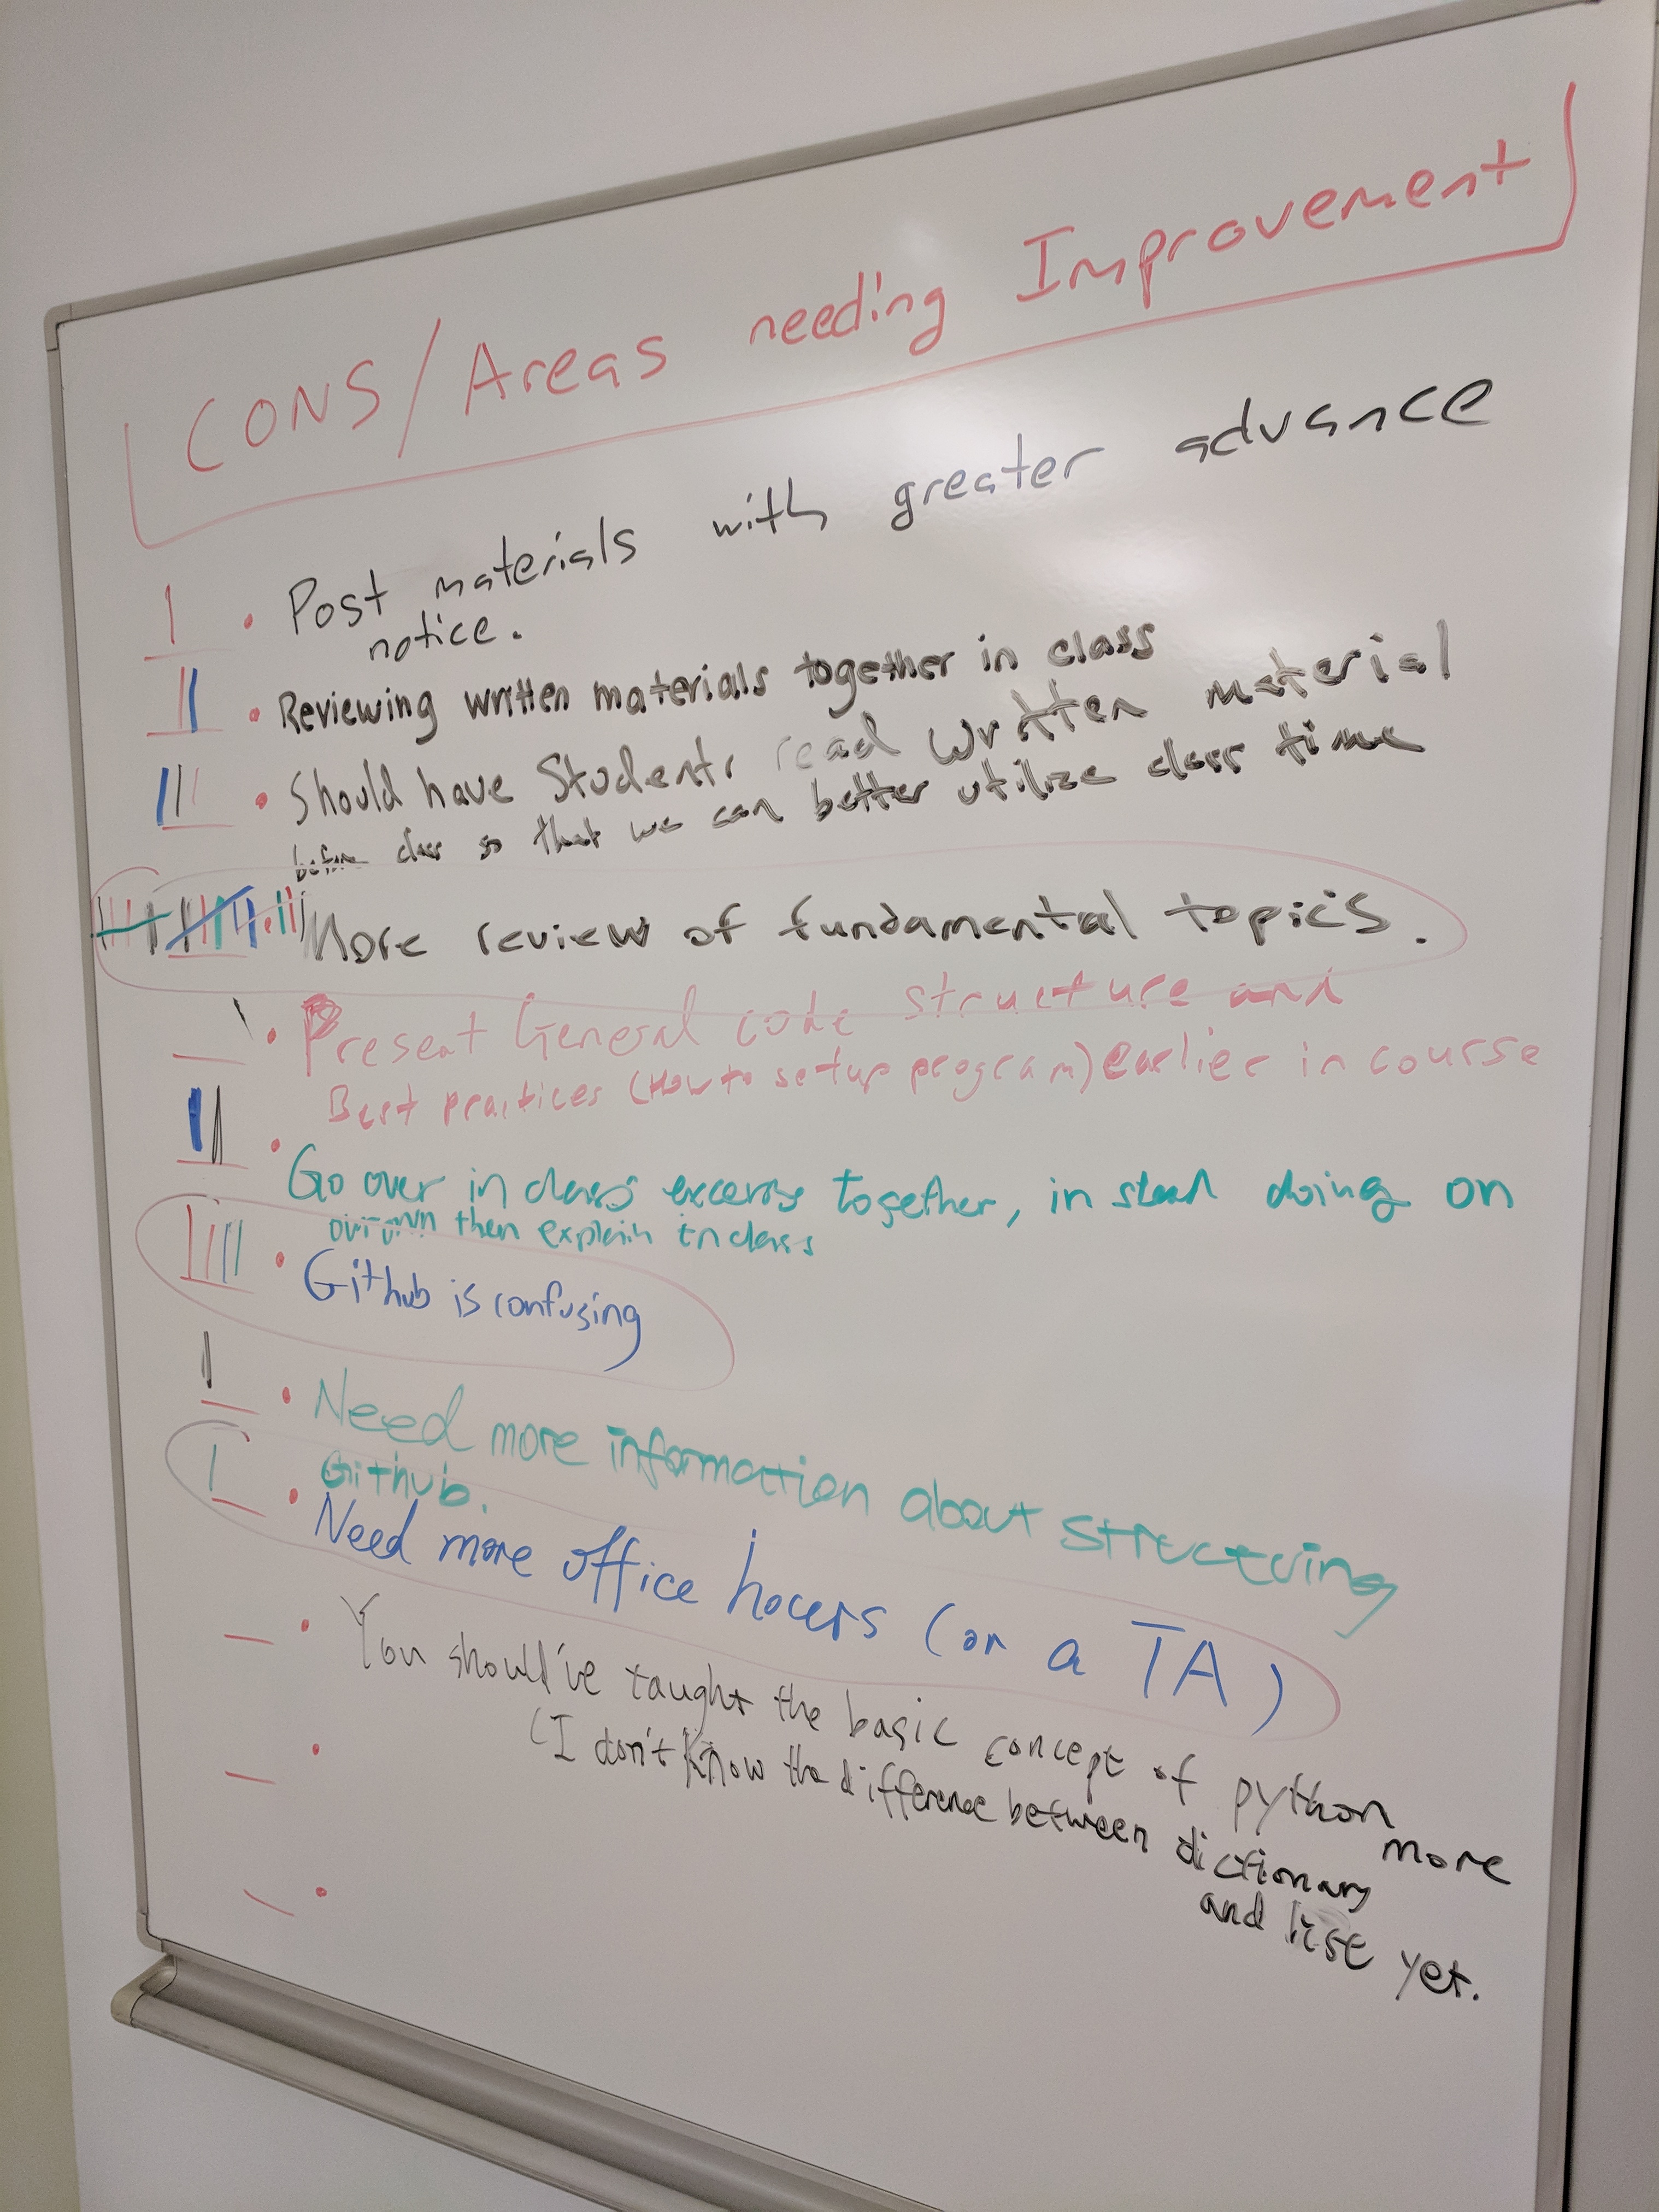 CONS/Areas needing Improvement
Post materials with greater advance
notice.
Reviewing written materials together in class
Should have Students read written material
before class so that we can better utilize class time
More review of fundamental topics.
Present General code structure and
Best practices (How to setup program) Earlier in course
Go over in class excerise together, in stead doing on
our own then explain in class
Github is confusing
Need more information about structuring
Github.
Need more office hours (or a TA)
You should've taught the basic concept of python more
(I don't know the difference between dictionary
and list yet.